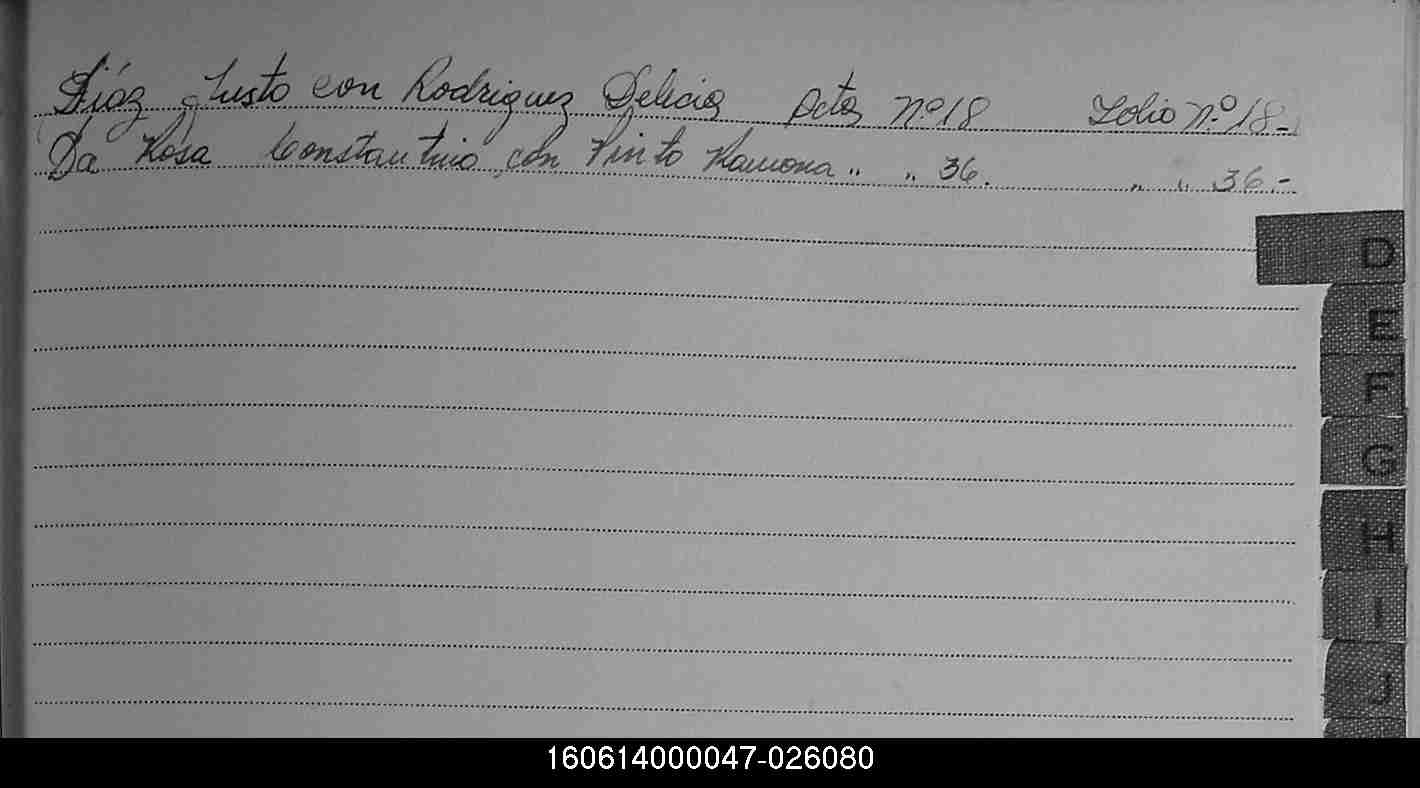 Díaz Justo con Rodriguez Delicia Acta Nº 18 Folio Nº 18-
Da Rosa Constantino con Pinto Ramona " " 36. " " 36.-
D
E
F
G
H
I
J
160614000047-026080